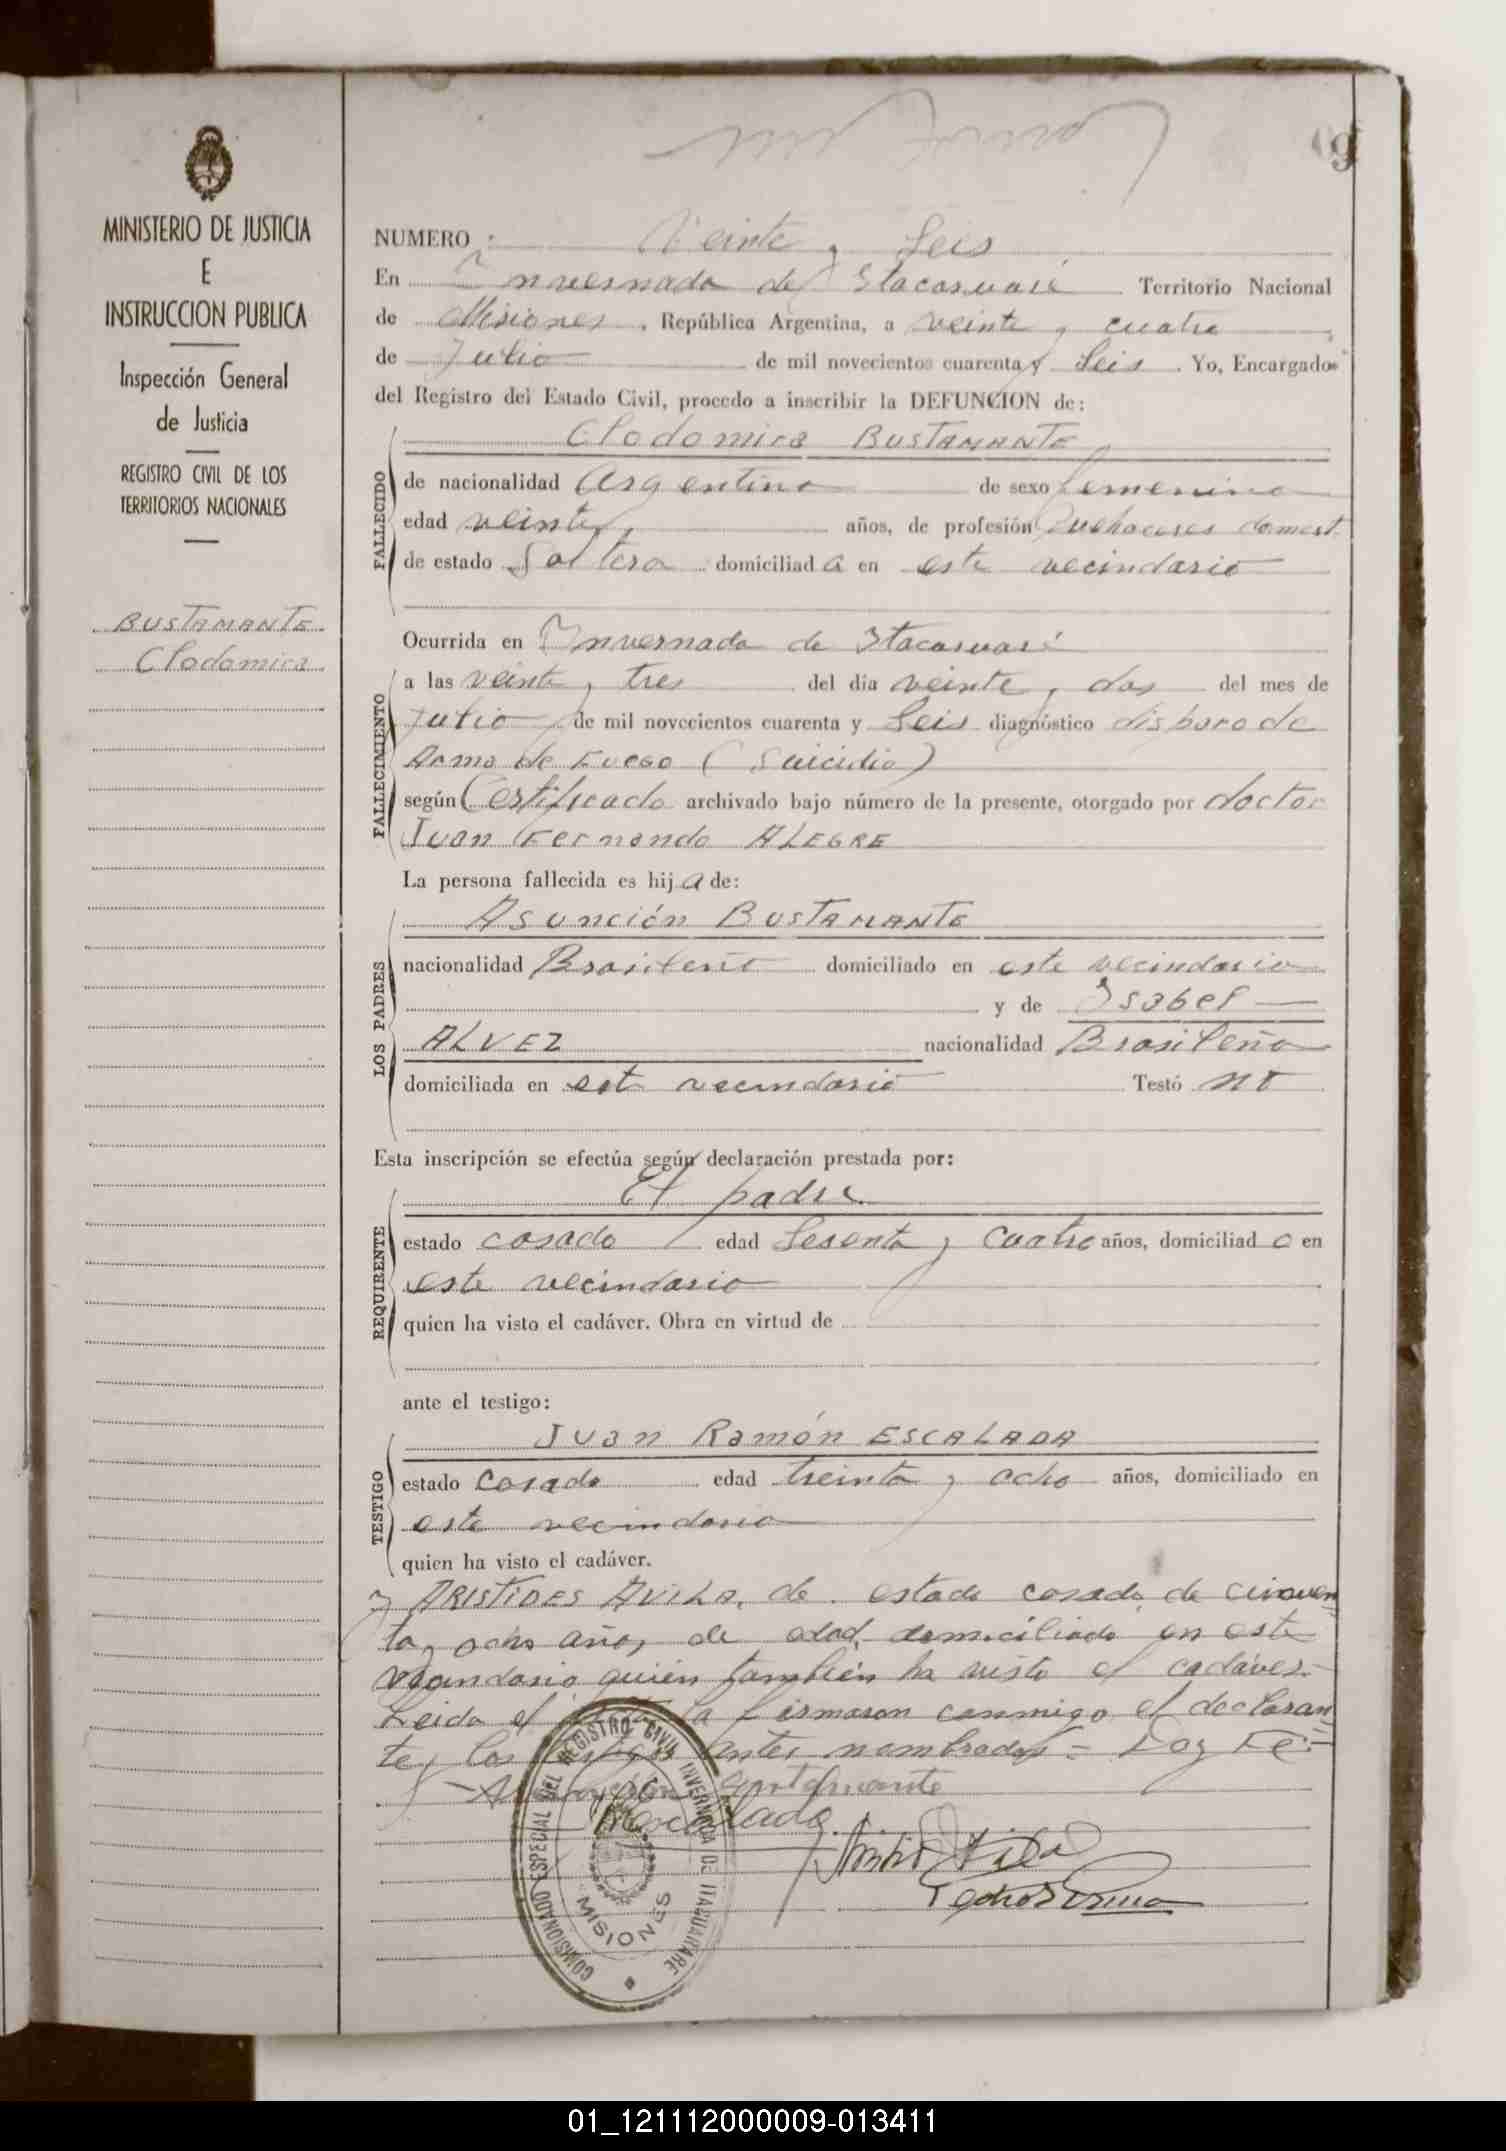 MINISTERIO DE JUSTICIA
E
INSTRUCCION PUBLICA
Inspección General
de Justicia
REGISTRO CIVIL DE LOS
TERRITORIOS NACIONALES
BUSTAMANTE
Clodomira
NUMERO : Veinte y Seis
En Invernada de Itacaruaré Territorio Nacional
de Misiones, República Argentina, a veinte y cuatro
de Julio de mil novecientos cuarenta y Seis. Yo, Encargado
del Registro del Estado Civil, procedo a inscribir la DEFUNCION de:
Clodomira BUSTAMANTE
FALLECIDO
de nacionalidad Argentina de sexo femenino
edad veinte, años, de profesión Quehaceres domest.
de estado Soltera domiciliad a en este vecindario
Ocurrida en Invernada de Itacaruaré
FALLECIMIENTO
a las veinte y tres del día veinte y dos del mes de
Julio de mil novecientos cuarenta y Seis diagnóstico disparo de
Arma de Fuego (Suicidio)
según Certificado archivado bajo número de la presente, otorgado por doctor
Juan Fernando ALEGRE
La persona fallecida es hij a de:
Asunción BUSTAMANTE
LOS PADRES
nacionalidad Brasileño domiciliado en este vecindario
y de Isabel —
ALVEZ nacionalidad Brasileña
domiciliada en este vecindario Testó no
Esta inscripción se efectúa según declaración prestada por:
El padre
REQUIRENTE
estado casado edad Sesenta y Cuatro años, domiciliad o en
este vecindario
quien ha visto el cadáver. Obra en virtud de
ante el testigo:
Juan Ramón ESCALADA
TESTIGO
estado Casado edad treinta y ocho años, domiciliado en
este vecindario
quien ha visto el cadáver.
y ARISTIDES AVILA, de estado casado de cincuen
ta y ocho años de edad, domiciliado en este
vecindario quién también ha visto el cadáver.-
Leida el la firmaron conmigo el declaran
te y los testigos antes nombrados = Doy Fé=
Asunción Bustamante
Escalada
COMISIONADO ESPECIAL DEL REGISTRO CIVIL INVERNADA DE ITACUARARE
MISIONES
01_121112000009-013411